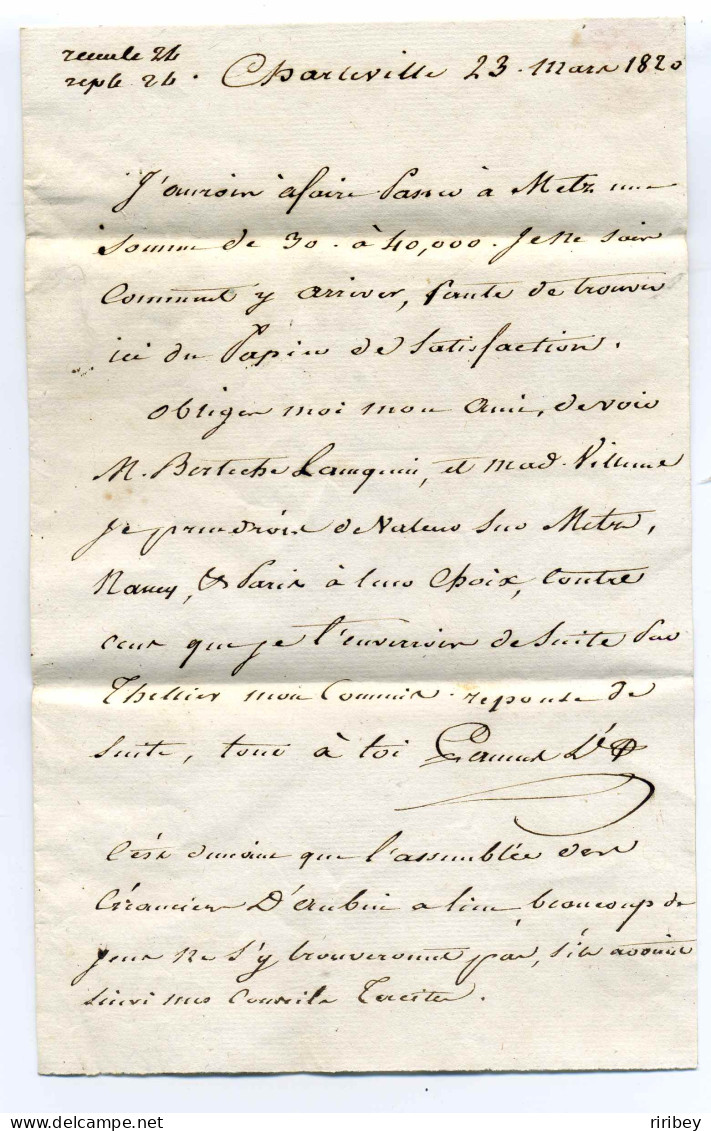 recu le 26
rep le 26. Charleville 23. Mars 1820
J'aurois à faire Passer à Metz une
Somme de 30. à 40,000. Je ne sais
Comment y arriver, faute de trouver
ici du Papier de Satisfaction.
Obligez moi mon ami, de voir
M. Berteche Lamquin, et mad. Villeme
Je prendrois de Valeurs Sur Metz,
Nancy, & Paris à leur Choix, Contre
ceux que je t'enverrois de Suite Par
Thellier mon Commis. reponse de
Suite, tout à toi
C'est demain que l'assemblée des
Créanciers D'aubin a lieu, beaucoup de
gens ne s'y trouveront pas, s'ils avoient
suivi mes Conseils
ribirey